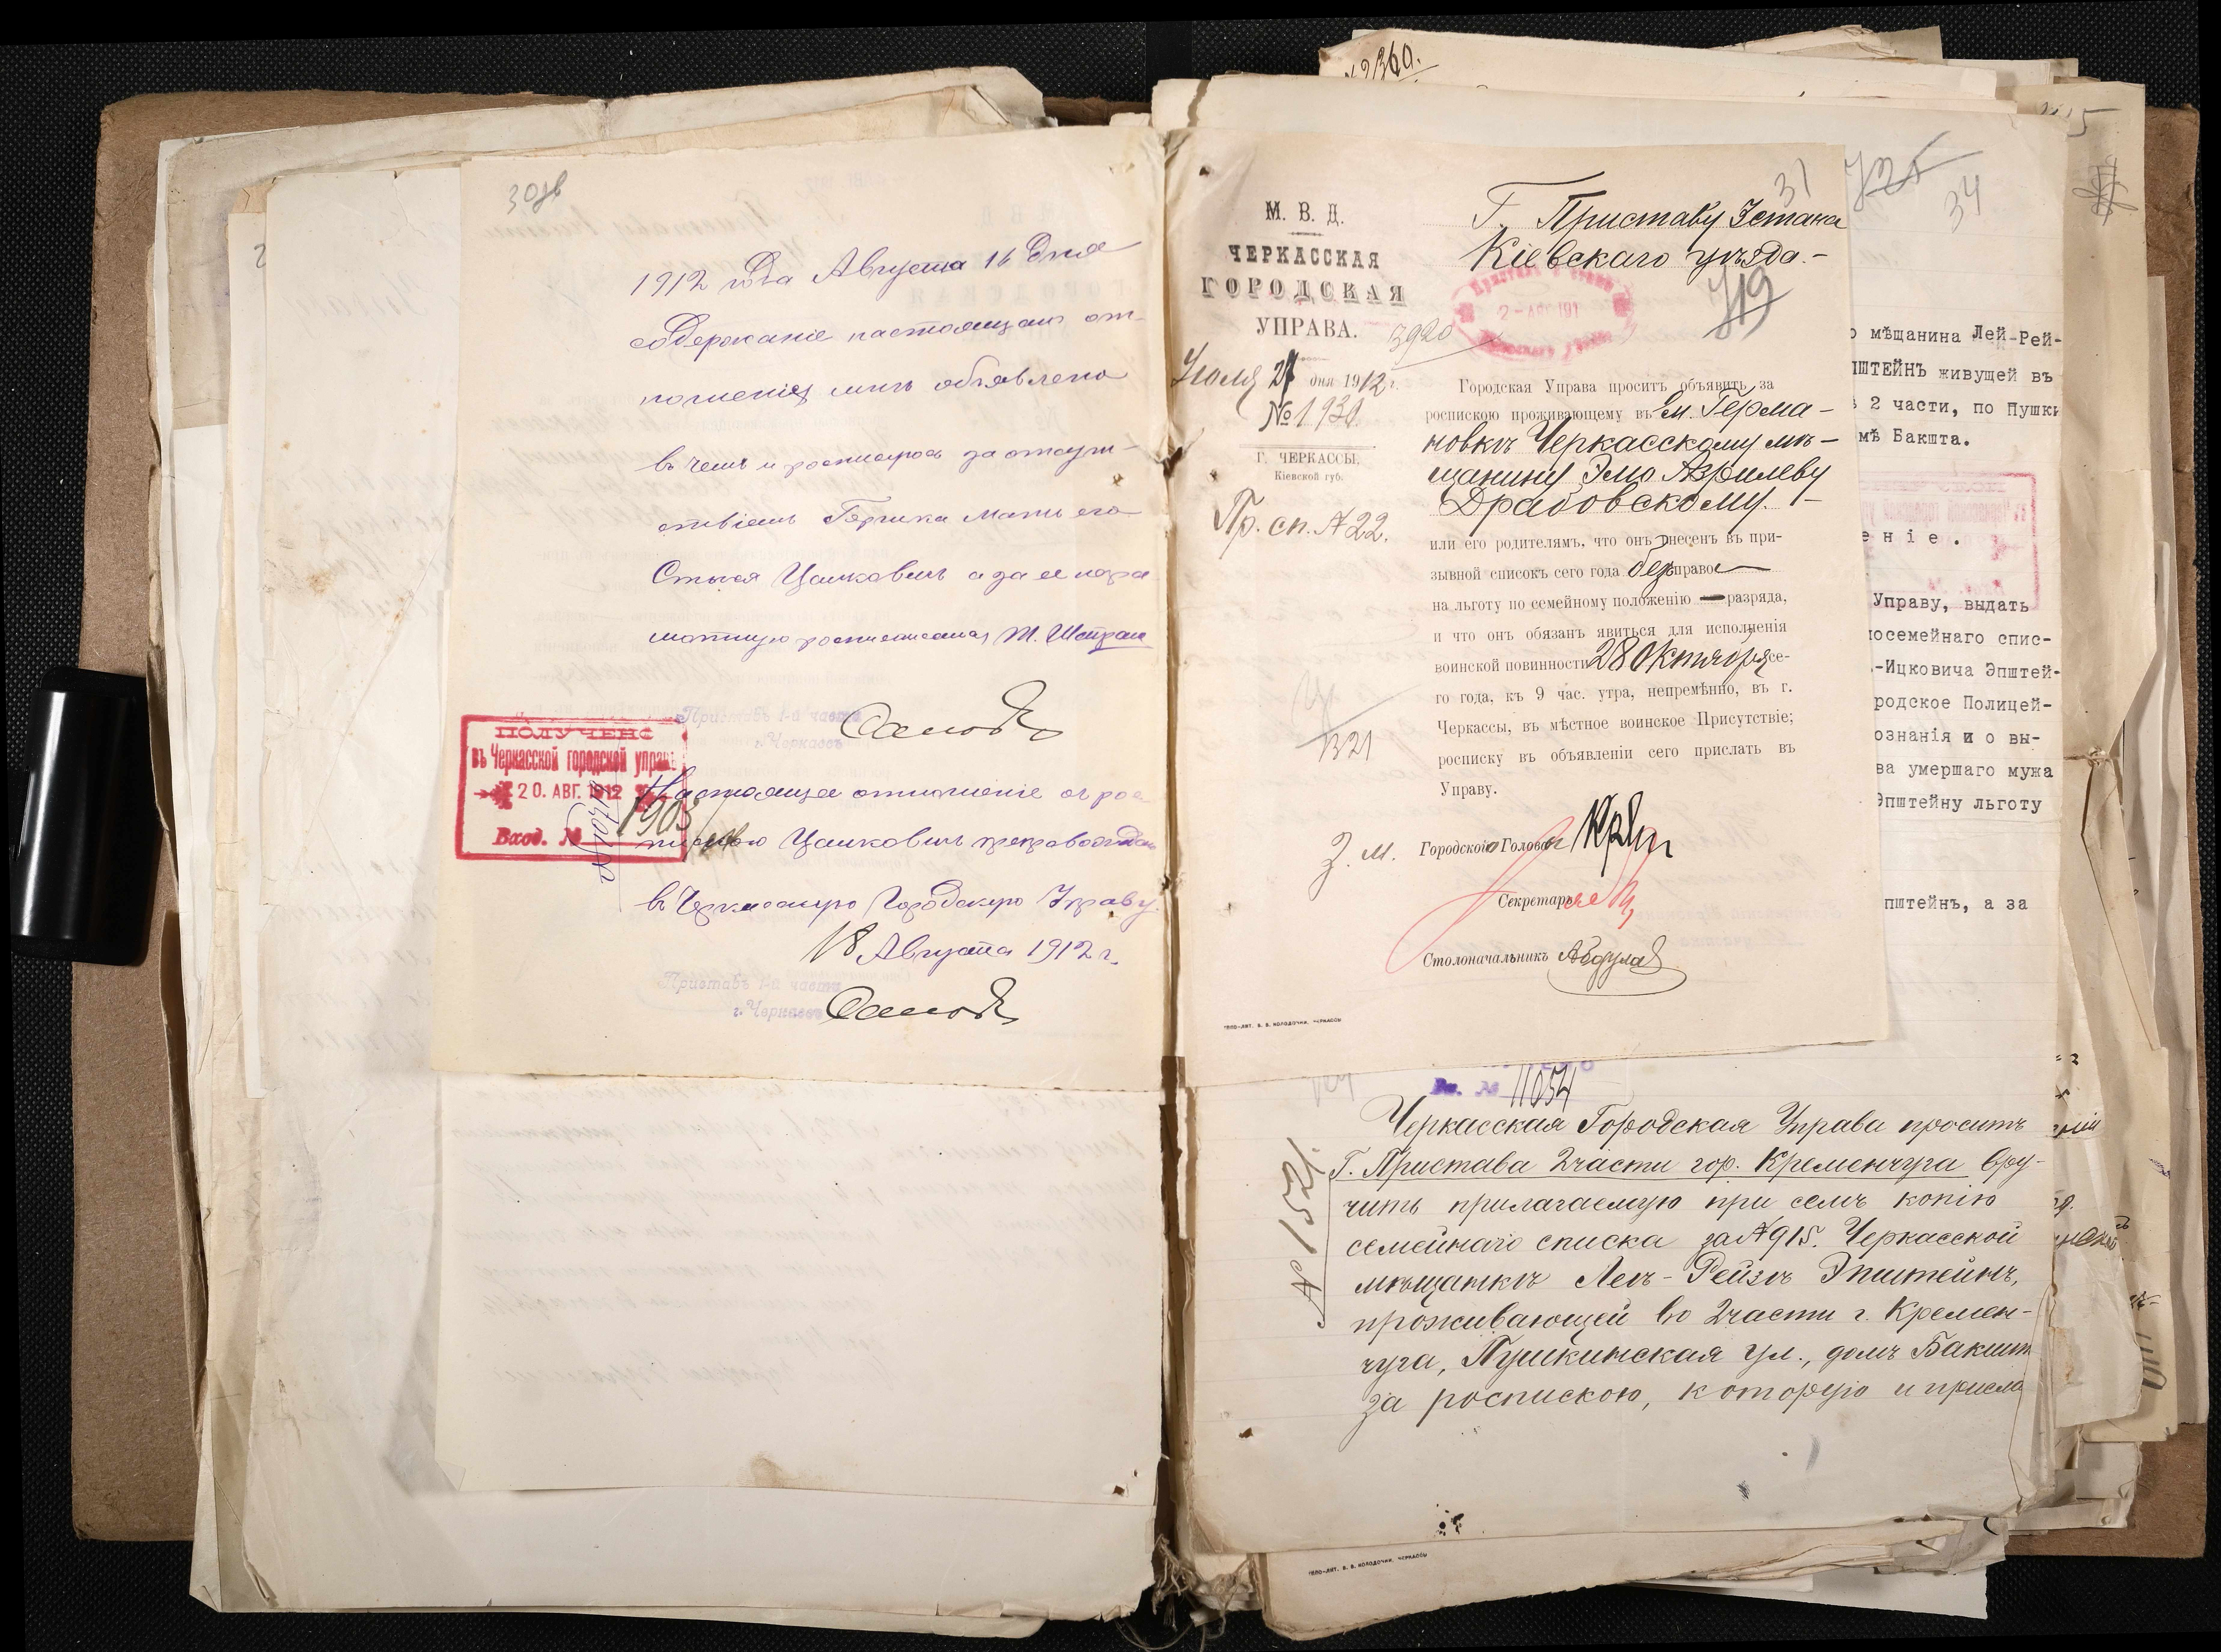 30об
1912 года Августа 16 дня
содержаніе настоящаго от-
ношенія мнѣ объявлено
въ чемъ и росписуюсь за отсут-
ствіемъ Гершка мать его
Стыся Цаиковичъ а за ея негра
мотную росписалась М.
Приставъ 1-й части
г. Черкассъ
ПОЛУЧЕНО
въ Черкасской городской управѣ
20. АВГ. 1912
Вход. № 1903
Настоящее отношеніе съ рос
пискою Цаиковичъ препровождаю
въ Черкасскую Городскую Управу.
18 Августа 1912 г.
Приставъ 1-й части
г. Черкассъ
№ 2360.
31
М. В. Д.
ЧЕРКАССКАЯ
ГОРОДСКАЯ
УПРАВА.
Іюля 27 дня 1912 г.
№ 1930
Г. ЧЕРКАССЫ,
Кіевской губ.
Пр. сп. № 22.
3920
1321
Г. Приставу 3 стана
Кіевскаго уѣзда.-
2 - АВГ 191
719
Городская Управа проситъ объявить за
роспискою проживающему въ м. Герма-
новкѣ Черкасскому мѣ-
щанину Элю Азрилеву
Драбовскому. -
или его родителямъ, что онъ внесенъ въ при-
зывной списокъ сего года безъ права
на льготу по семейному положенію — разряда,
и что онъ обязанъ явиться для исполненія
воинской повинности 28 Октября се-
го года, къ 9 час. утра, непремѣнно, въ г.
Черкассы, въ мѣстное воинское Присутствіе;
росписку въ объявленіи сего прислать въ
Управу.
З. М. Городского Головы
Секретарь
Столоначальникъ
ТИПО-ЛИТ. В. В. КОЛОДОЧКИ, ЧЕРКАССЫ
725
34
о мѣщанина Лей-Рей-
ПШТЕЙНЪ живущей въ
2 части, по Пушки
мѣ Бакшта.
е н і е .
Управу, выдать
посемейнаго спис-
-Ицковича Эпштей-
родское Полицей-
ознанія и о вы-
ва умершаго мужа
Эпштейну льготу
пштейнъ, а за
Вх. № 11054
№ 1521.
Черкасская Городская Управа проситъ
Г. Пристава 2 части гор. Кременчуга вру-
чить прилагаемую при семъ копію
семейнаго списка за № 915. Черкасской
мѣщанкѣ Леѣ-Рейзѣ Эпштейнъ,
проживающей во 2 части г. Кремен-
чуга, Пушкинская ул., домъ Бакшт
за роспискою, которую и присла
ТИПО-ЛИТ. В. В. КОЛОДОЧКИ, ЧЕРКАССЫ